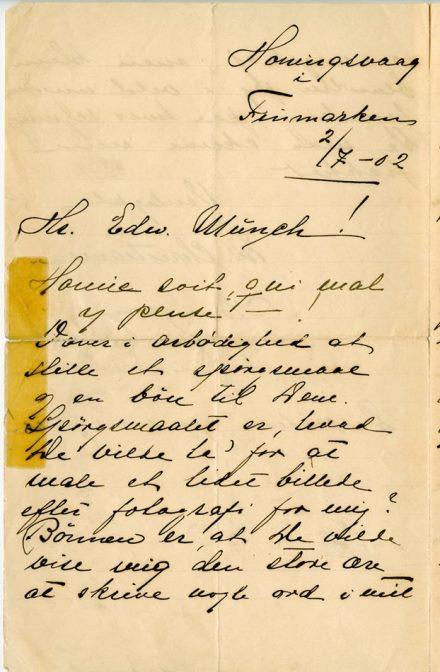 Honingsvaag
i
Finmarken
2/7 - 02
Hr. Edw. Münch!
Honnie soit, qui mal
y pense! —
Vover i ærbødighed at
stille et spørgsmaal
og en bøn til Dem.
Spørgsmaalet er, hvad
De vilde ta' for at
male et lidet billede
efter fotografi for mig?
Bønnen er, at De vilde
vise mig den store ære
at skrive nogle ord i mit